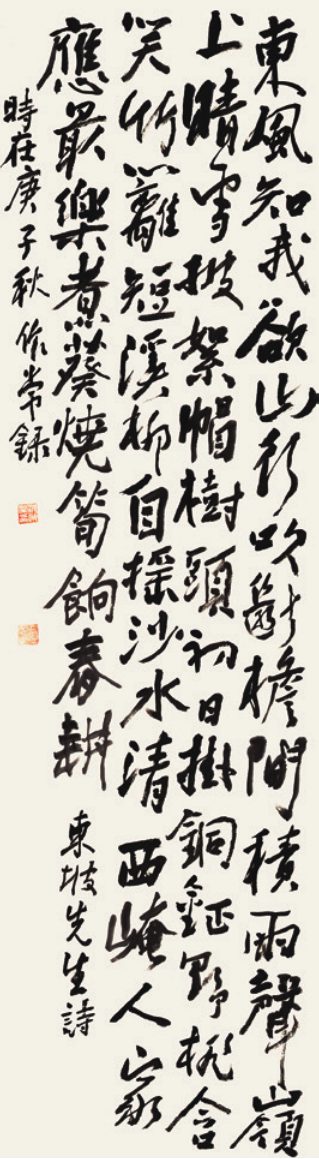 東風知我欲山行吹斷檐間積雨聲嶺
上晴雲披絮帽樹頭初日掛銅鉦野桃含
笑竹籬短溪柳自搖沙水清西崦人家
應最樂煮葵燒筍餉春耕 東坡先生詩
時在庚子秋作常録